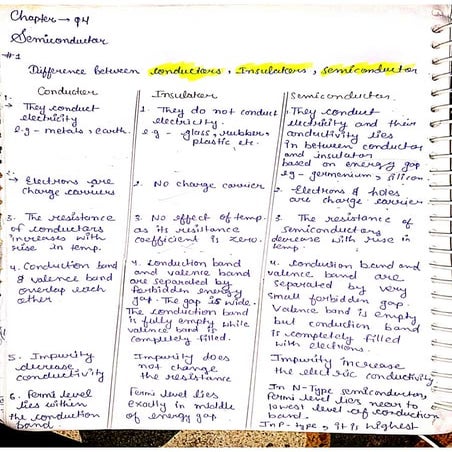 Chapter → 14
Semiconductor
#1
Difference between conductors, Insulators, Semiconductor
Conductor
1. → They conduct
electricity
e.g - metals, earth.
2. → Electrons are
charge carriers
3. The resistance
of conductors
increases with
rise in temp.
4. Conduction band
& valence band
overlap each
other.
5. Impurity
decrease
conductivity
6. Fermi level
lies within
the conduction
band.
Insulator
1. They do not conduct
electricity.
e.g - glass, rubber,
plastic etc.
2. No charge carrier
3. No effect of temp.
as its resistance
coefficient is zero.
4. Conduction band
and valence band
are separated by
forbidden energy
gap. The gap is wide.
The conduction band
is fully empty while
valence band is
completely filled.
Impurity does
not change
the resistance
Fermi level lies
exactly in middle
of energy gap
Semiconductor
They conduct
electricity and their
conductivity lies
in between conductor
and insulator
based on energy gap
eg - germenium, silicon
2. Electrons & holes
are charge carrier
3. The resistance of
Semiconductors
decrease with rise in
temp.
4. Conduction band and
valence band are
separated by very
small forbidden gap.
Valence band is empty
but conduction band
is completely filled
with electrons.
Impurity increase
the electric conductivity
In N-Type semiconductor,
Fermi level lies near to
lowest level of conduction
band.
In P-type, it is highest